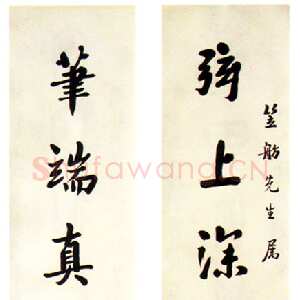 笠舫先生属
弦上深
筆端真
Shufawang.CN